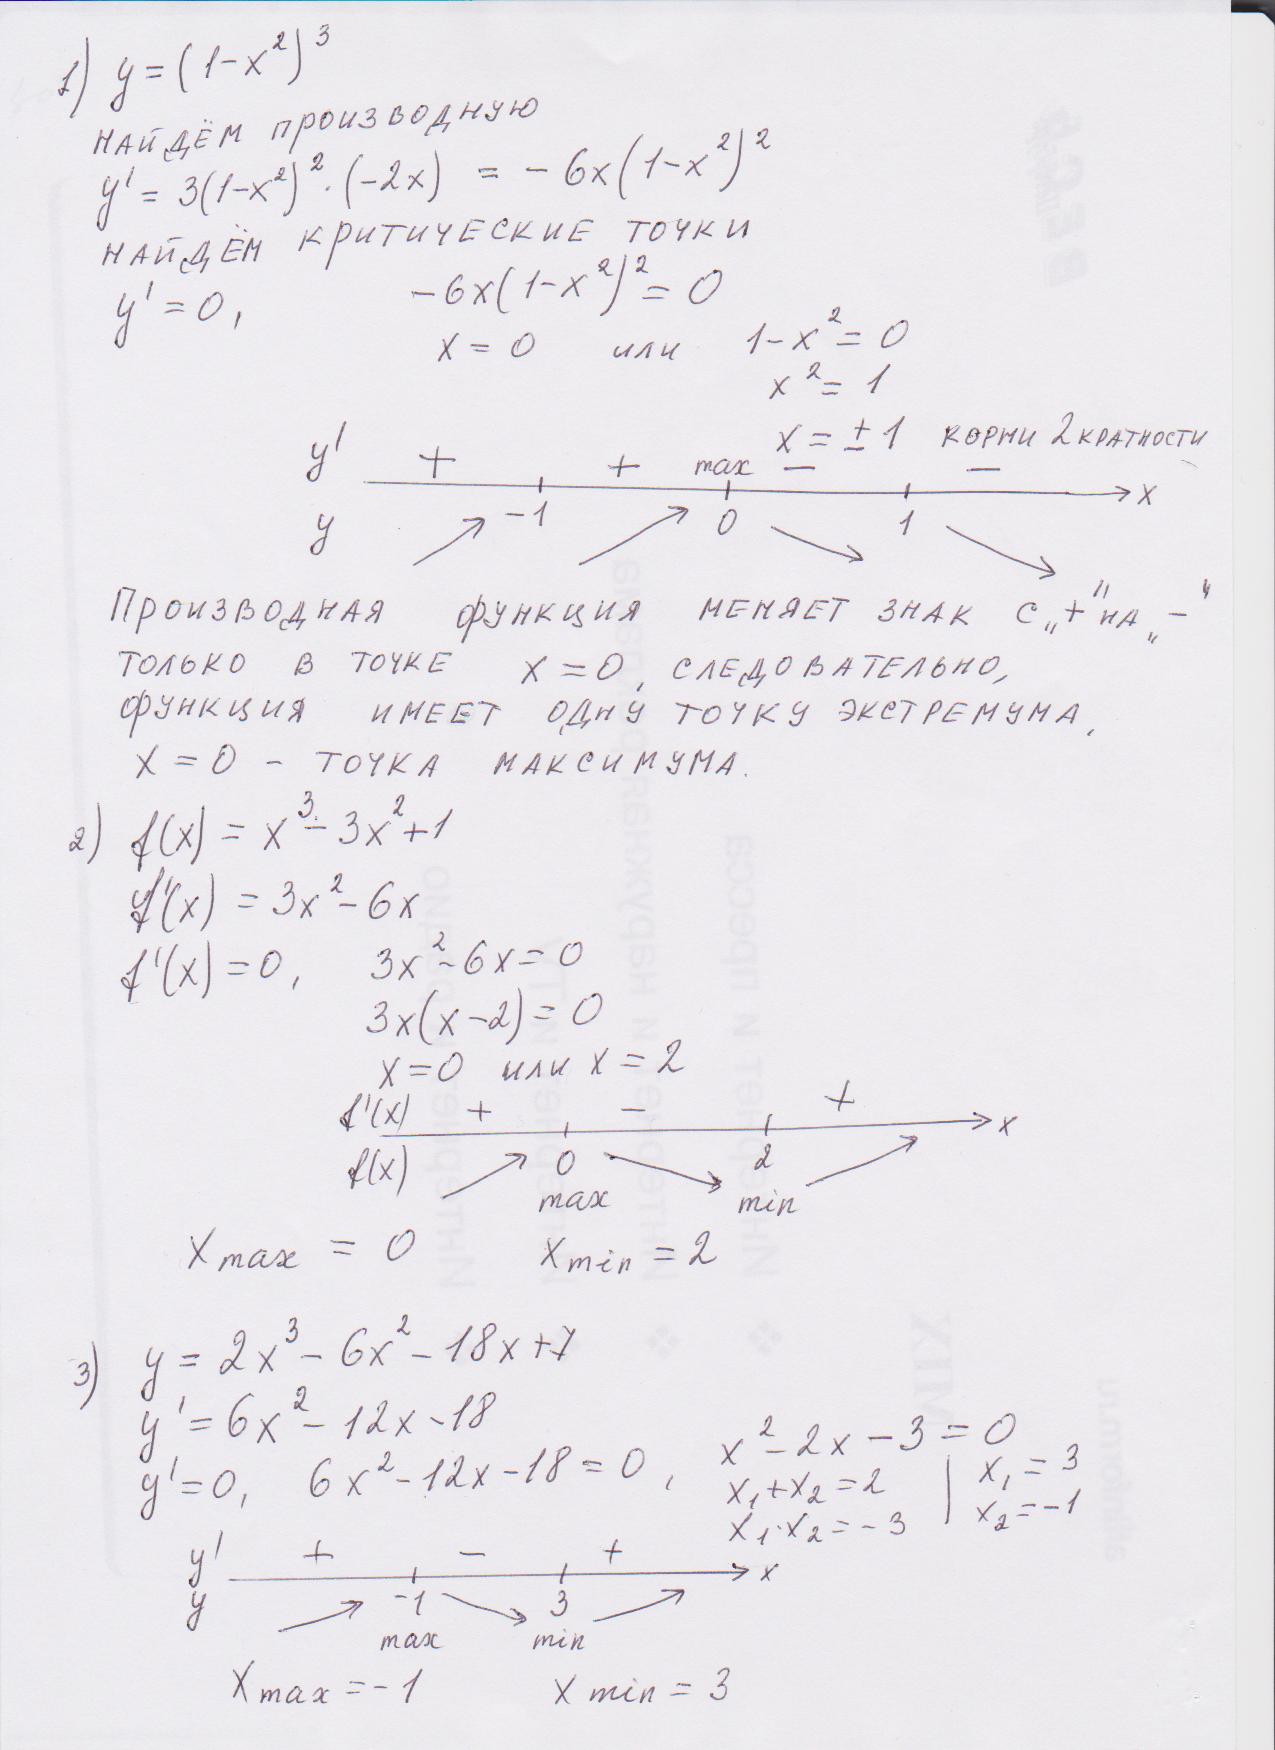 1) y = (1-x²)³
НАЙДЁМ ПРОИЗВОДНУЮ
y' = 3(1-x²)²·(-2x) = -6x(1-x²)²
НАЙДЁМ КРИТИЧЕСКИЕ ТОЧКИ
y' = 0, -6x(1-x²)² = 0
x = 0 или 1-x² = 0
x² = 1
x = ±1 КОРНИ 2 КРАТНОСТИ
y' + + max - -
-1 0 1 x
y
ПРОИЗВОДНАЯ ФУНКЦИЯ МЕНЯЕТ ЗНАК С „+" НА „-"
ТОЛЬКО В ТОЧКЕ x = 0, СЛЕДОВАТЕЛЬНО,
ФУНКЦИЯ ИМЕЕТ ОДНУ ТОЧКУ ЭКСТРЕМУМА,
x = 0 - ТОЧКА МАКСИМУМА.
2) f(x) = x³ - 3x² + 1
f'(x) = 3x² - 6x
f'(x) = 0, 3x² - 6x = 0
3x(x-2) = 0
x = 0 или x = 2
f'(x) + - +
x
f(x) 0 2
max min
x max = 0 x min = 2
3) y = 2x³ - 6x² - 18x + 7
y' = 6x² - 12x - 18
y' = 0, 6x² - 12x - 18 = 0, x² - 2x - 3 = 0
x₁ + x₂ = 2 | x₁ = 3
x₁·x₂ = -3 | x₂ = -1
y' + - +
x
y -1 3
max min
x max = -1 x min = 3